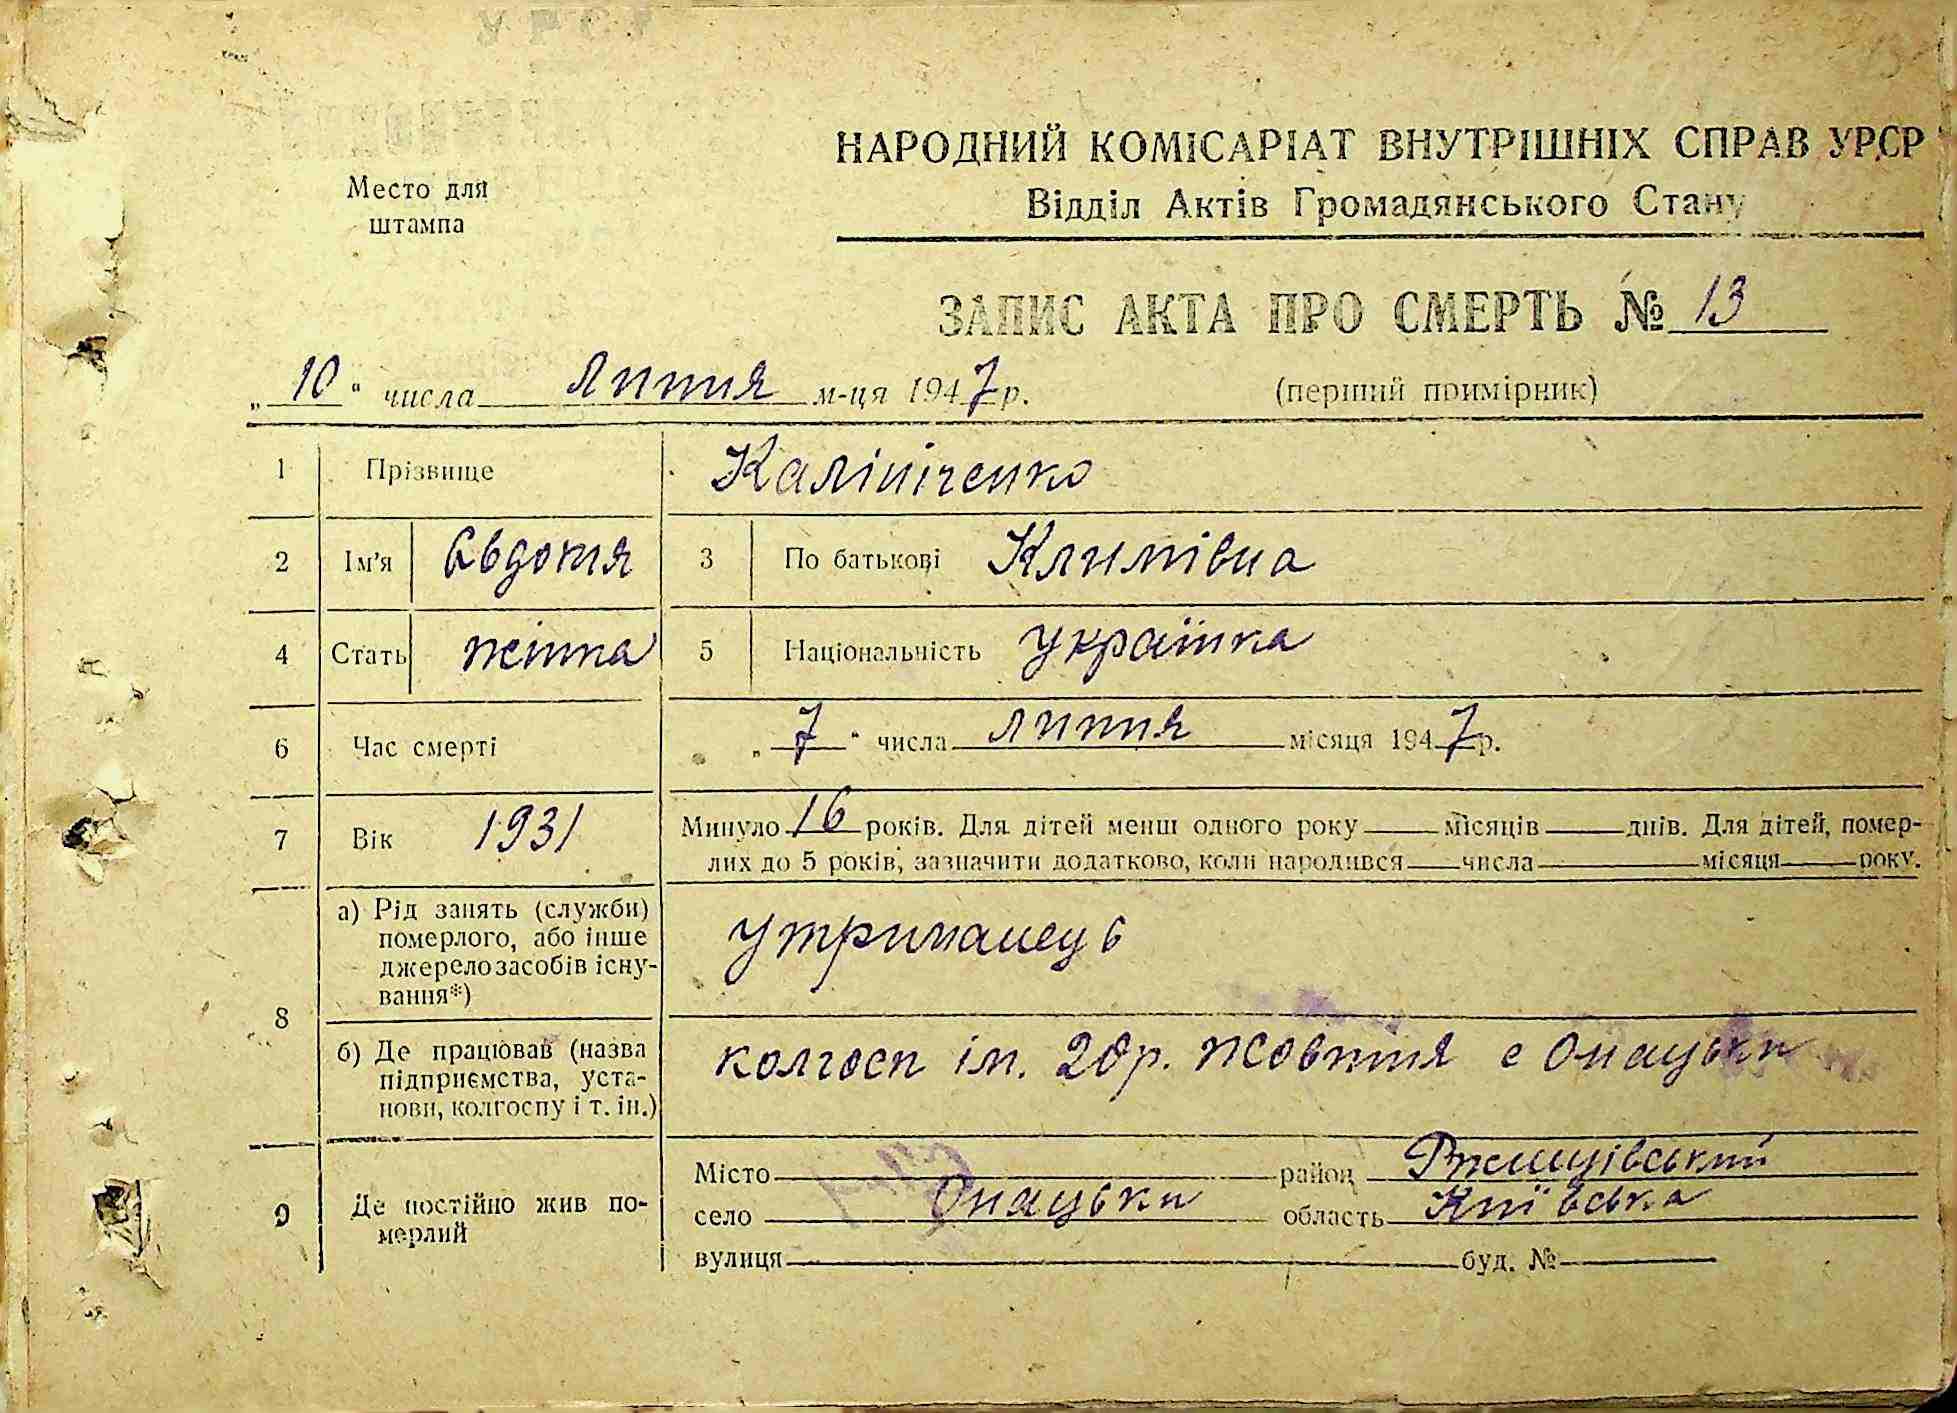 Место для
штампа
НАРОДНИЙ КОМІСАРІАТ ВНУТРІШНІХ СПРАВ УРСР
Відділ Актів Громадянського Стану
ЗАПИС АКТА ПРО СМЕРТЬ № 13
„10“ числа липня м-ця 1947 р.
(перший примірник)
1 Прізвище Калініченко
2 Ім'я Євдотія 3 По батькові Климівна
4 Стать жінка 5 Національність українка
6 Час смерті „7“ числа липня місяця 1947 р.
7 Вік 1931 Минуло 16 років. Для дітей менш одного року місяців днів. Для дітей, помер-
лих до 5 років, зазначити додатково, коли народився числа місяця року.
8 а) Рід занять (служби)
померлого, або інше
джерело засобів існу-
вання*)
утриманець
б) Де працював (назва
підприємства, уста-
нови, колгоспу і т. ін.)
колгосп ім. 20 р. Жовтня с Онацьки
9 Де постійно жив по-
мерлий
Місто район Ржищівський
село Онацьки область Київська
вулиця буд. №